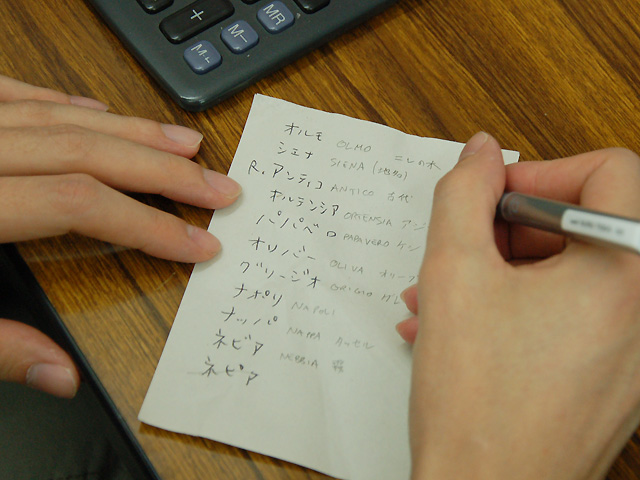 +
MR
M-
M+
オルモ OLMO ニレの木
シエナ SIENA (地名)
R. アンティコ ANTICO 古代
オルテンシア ORTENSIA アジ
パパベロ PAPAVERO ケシ
オリバー OLIVA オリーブ
グリージオ GRIGIO グレ
ナポリ NAPOLI
ナッパ NAPPA
ネビア NEBBIA 霧
ネビア